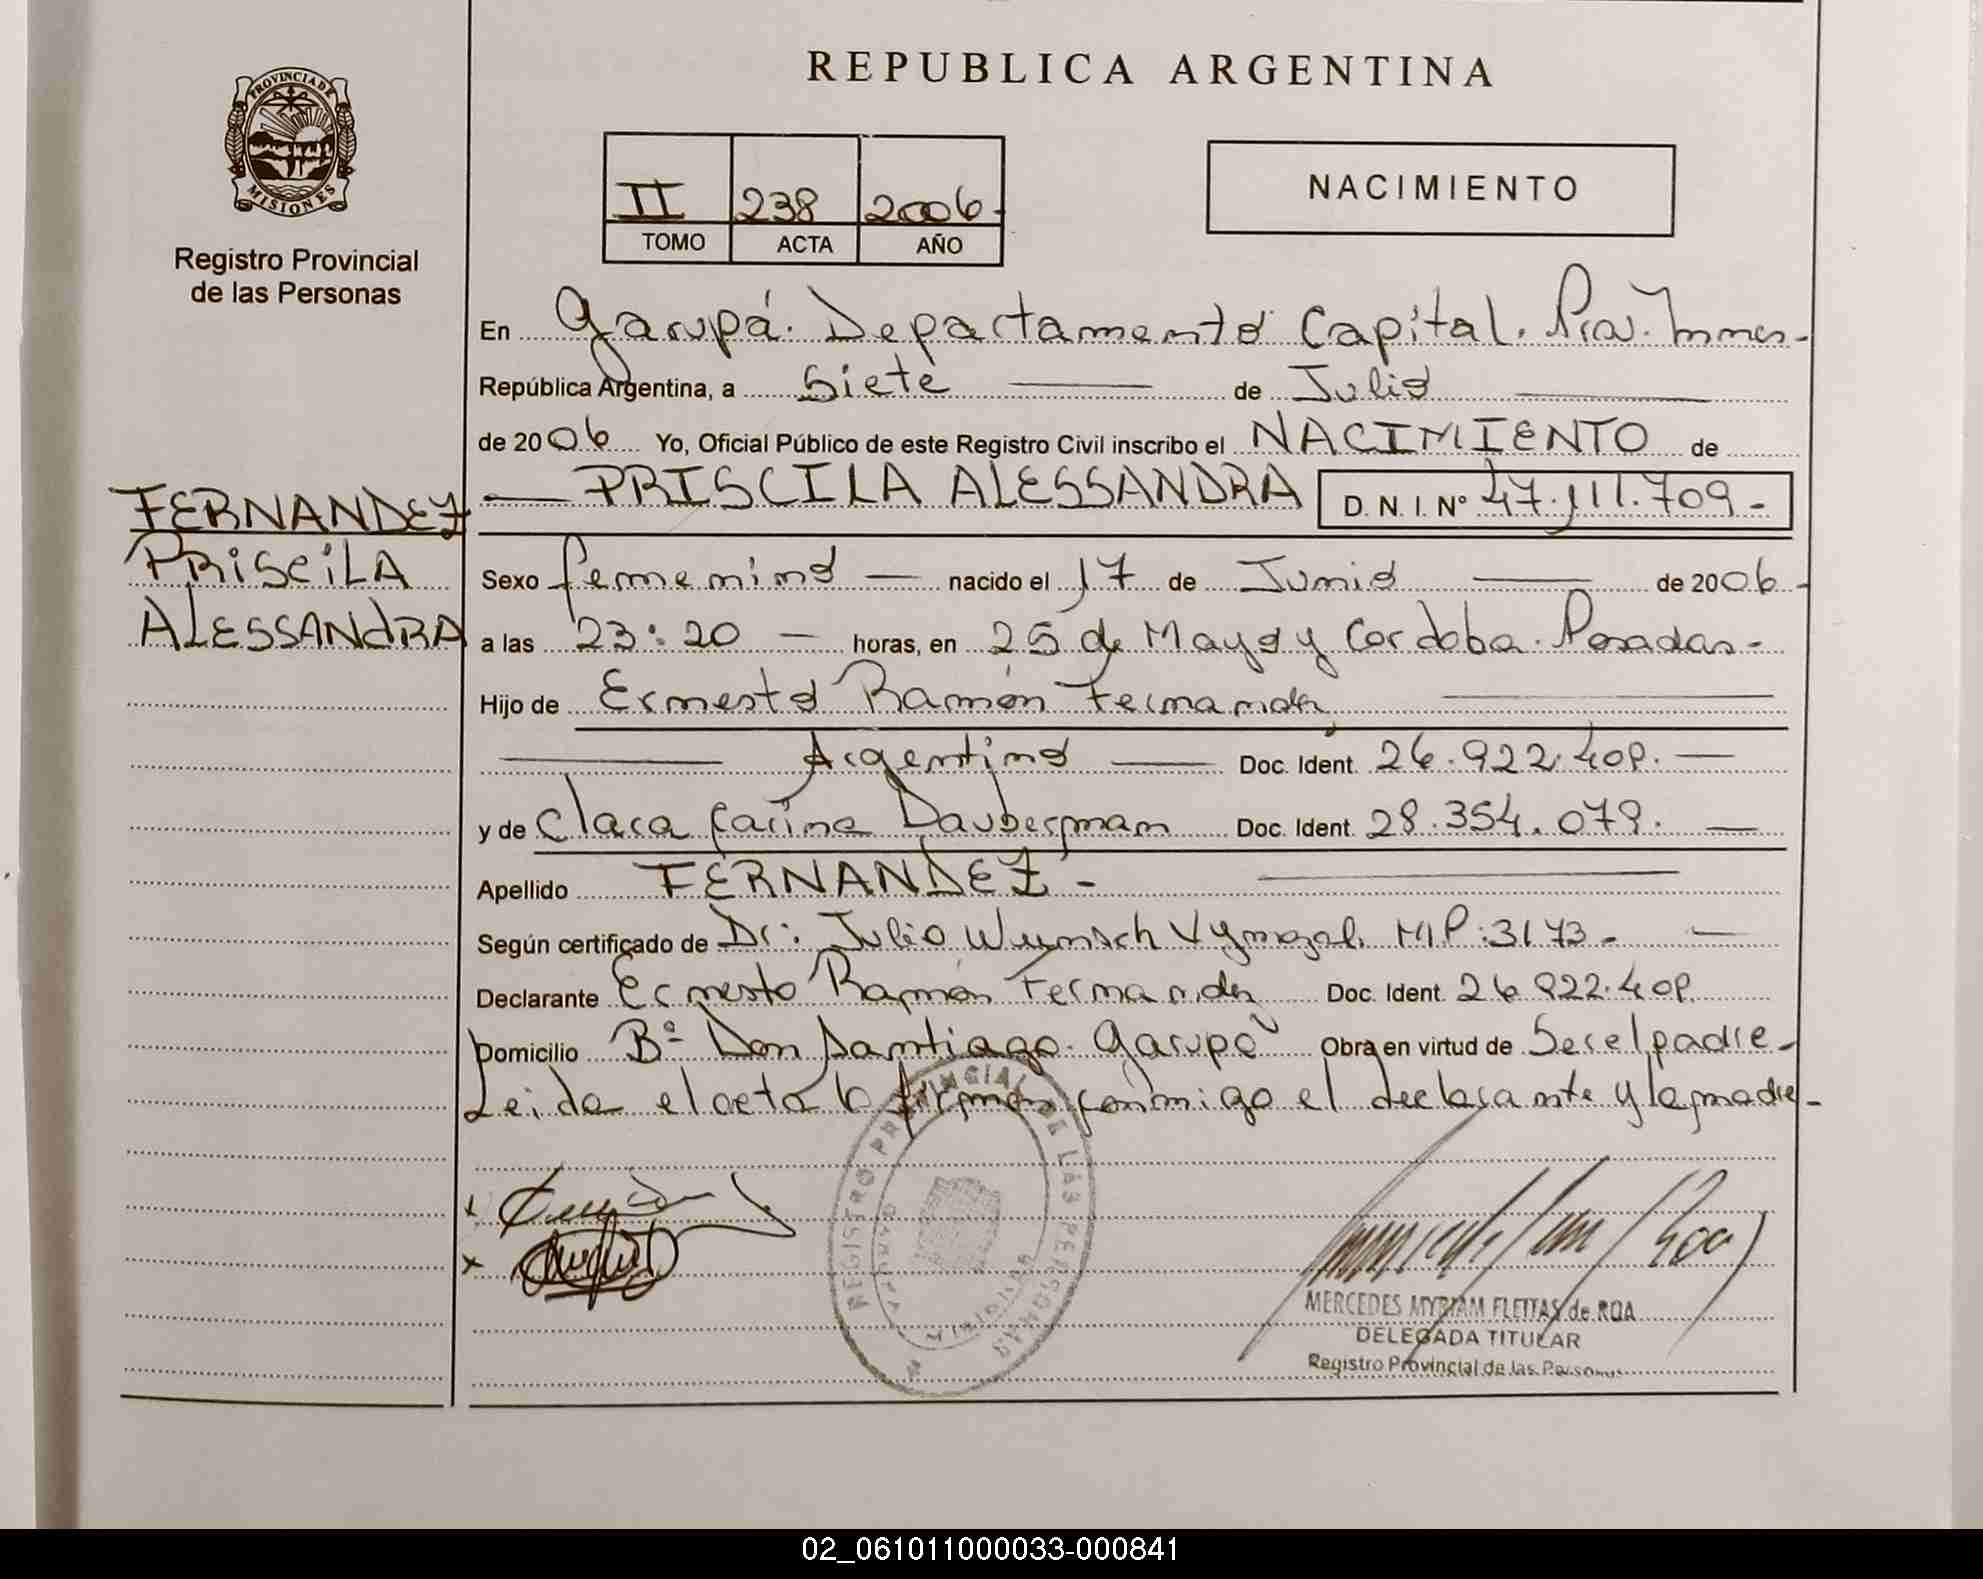 REPUBLICA ARGENTINA
PROVINCIA DE
MISIONES
Registro Provincial
de las Personas
II 238 2006-
TOMO ACTA AÑO
NACIMIENTO
En Garupá. Departamento Capital. Prov.
República Argentina, a Siete de Julio
de 2006 Yo, Oficial Público de este Registro Civil inscribo el NACIMIENTO de
PRISCILA ALESSANDRA D. N. I. Nº 47.111.709-
FERNANDEZ
PRISCILA
ALESSANDRA
Sexo femenino nacido el 17 de Junio de 2006-
a las 23:20 horas, en 25 de Mayo y Cordoba. Posadas-
Hijo de Ernesto Ramón Fernandez
Argentino Doc. Ident. 26.922.409.
y de Clara Carina Daubergman Doc. Ident. 28.354.079.
Apellido FERNANDEZ-
Según certificado de Dr: Julio MP:3173-
Declarante Ernesto Ramón Fernandez Doc. Ident. 26.922.409.
Domicilio Bº Don Santiago. Garupá Obra en virtud de Ser el padre-
Leida el acta la firman conmigo el declarante y la madre-
REGISTRO PROVINCIAL DE LAS PERSONAS
MISIONES
MERCEDES MYRIAM FLEITAS de ROA
DELEGADA TITULAR
Registro Provincial de las Personas
02_061011000033-000841